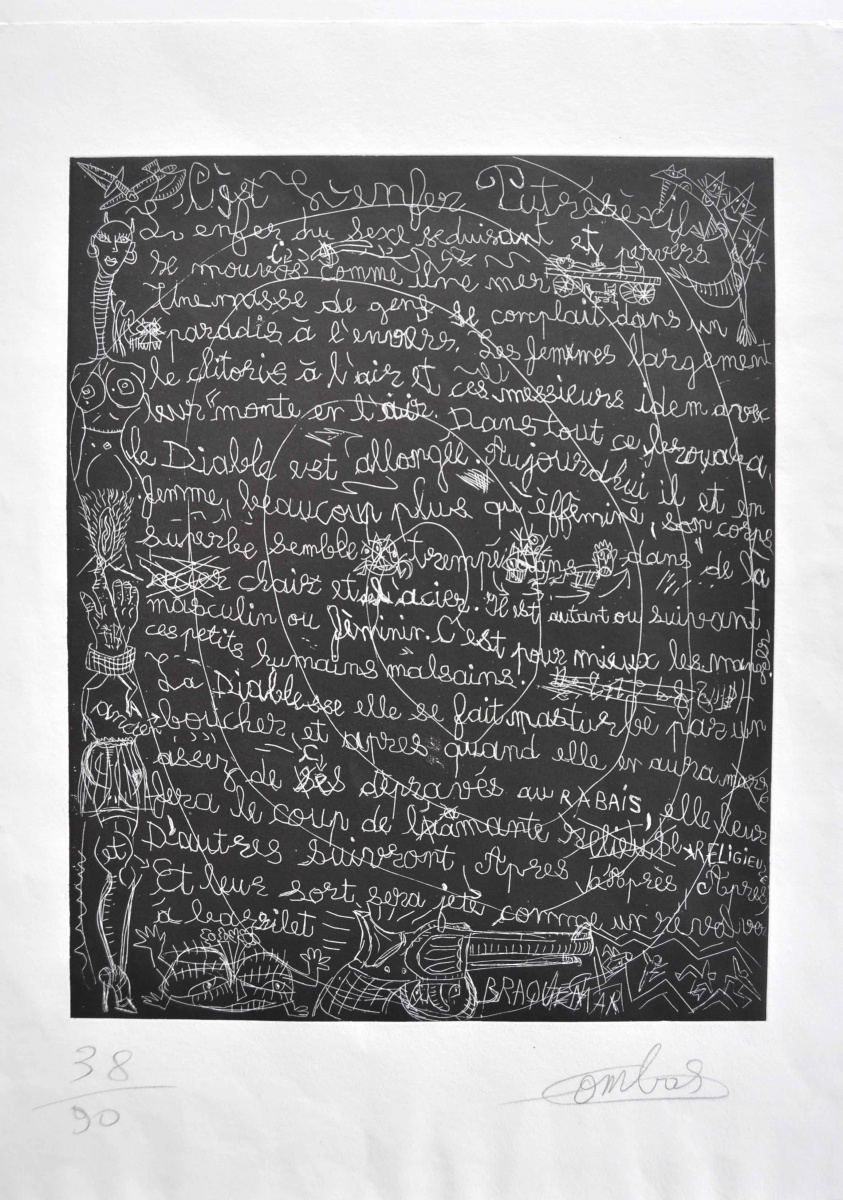 C'est L'enfer
L'enfer du sexe séduisant et pervers
se mouvoir comme une mer
Une masse de gens se complait dans un
paradis à l'envers. Les femmes largement
le clitoris à l'air et ces messieurs idem avec
leur monte en l'air. Dans tout ce
le Diable est allongée. Aujourdhui il et en
femme, beaucoup plus qu'éfféminé, son corps
superbe semble trempé dans de la
chair et acier. Il est autant ou suivant
masculin ou féminin. C'est pour mieux les manger
ces petits humains malsains.
La Diablesse elle se fait masturbe par un
boucher, et apres quand elle en aura marre
assez de ces dépravés au RABAIS, elle leur
fera le coup de l'amante RELIGIEUSE
D'autres suivront Apres Apres Apres
Et leur sort sera jeté comme un revolver
à barrilet
BRAQUEMAR
38
90
Combas